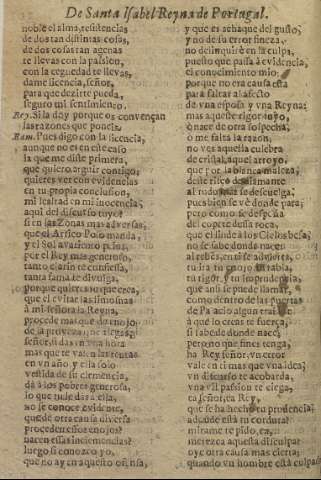 De Santa Isabel Reyna de Portugal.
noble el alma, resistencias
de dos tan distintas cosas,
de dos cosas tan agenas
te llevas con la passion,
con la ceguedad te llevas,
dame licencia, señor,
para que dezirte pueda,
seguro mi sentimiento.
Rey. Si la doy porque os convençan
las razones que poneis.
Ram. Pues digo con la licencia,
aunque no es en este caso
la que me diste primera,
que quiero arguir contigo;
quieres ver con evidencias
en tu propia conclusion,
mi lealtad en mi inocencia;
aqui del discurso tuyo:
si en las Zonas mas adversas,
que el Artico Polo manda,
y el Sol
por el Rey mas generoso,
tanto clarin te confiessa,
tanta fama te divulga,
porque quieres so
que el evitar las limosnas
à mi señora la Reyna,
procede mas que de enojo,
de la pro
señor, si das in vna hora
mas que te valen las rentas
en vn año, y ella solo
vestida de su clemencia,
dà à los pobres generosa,
lo que nadie dà a ella,
no se conoce evidente,
que de otra causa diversa
proceden essos enojos?
nacen essas inclemencias?
luego si conozco yo,
que no ay en aquesto ofensa,
y que es achaque del gusto,
y no de su error fineza,
no delinquirè en la culpa,
puesto que passa à evidencia,
el conocimiento mio;
porque no era causa esta
para faltar al afecto
de vna esposa y vna Reyna;
mas aqueste rigor tuyo,
ò nace de otra sospecha,
ò me falta la razon,
no ves aquella culebra
de cristal, aquel arroyo,
que por la blanca maleza,
deste risco de diamante
al rudo se descuelga,
pues bien se vè donde para;
pero como se despeña
del copete dessa roca,
que el linde à los Cielos besa,
no se sabe donde nace;
al rebès, en ti se advierta,
tu ira tu enojo tu rabia,
tu rigor, y tu imprudencia,
que assi se puede llamar,
como dentro de las puertas
de Palacio algun
à que lo creas te fuerça,
si sabe donde nace;
pero no que fines tenga,
ha Rey señor, vn error
vale en ti mas que vna idea;
vn discurso te acobarda,
vn te vil passion te ciega,
ea señor, ea Rey,
que se ha hecho tu prudencia;
adonde està tu cordura?
mirame te pido,
merezca aquesta disculpa:
oye otra causa mas cierta;
quando vn hombre està culpa-